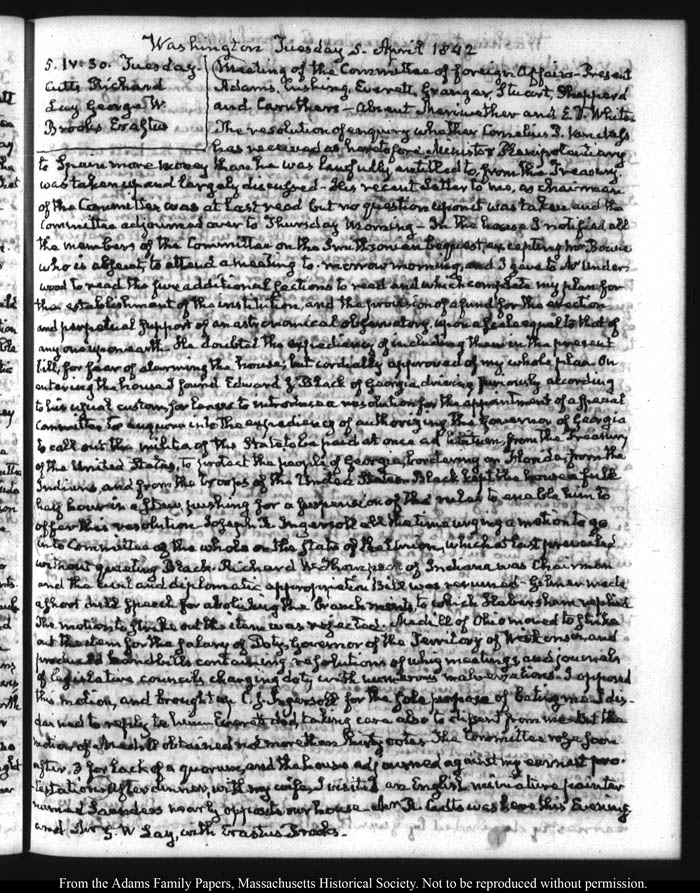 Washington Tuesday 5. April 1842
5. IV:30. Tuesday
Cutts Richard
Lay George W.
Brooks Erastus
Meeting of the Committee of foreign Affairs - Present
Adams, Cushing, Everett, Granger, Stuart, Shepperd
and Caruthers - Absent Meriwether and E. D. White
The resolution of enquiry whether Cornelius P. Van Ness
has received as heretofore Minister Plenipotentiary
to Spain more money than he was lawfully entitled to, from the Treasury
was taken up and largely discussed - His recent Letter to me, as chairman
of the Committee was at last read but no question upon it was taken and the
Committee adjourned over to Thursday Morning - In the house I notified all
the members of the Committee on the Smithsonian bequest, excepting Mr Bowne
who is absent, to attend a meeting to-morrow morning, and I gave to Mr Under-
wood to read the five additional sections to read and which complete my plan for
the establishment of the institution, and the provision of a fund for the erection
and perpetual support of an astronomical observatory, upon a scale equal to that of
any one upon earth. He doubted the expediency of including them in the present
bill, for fear of alarming the house; but cordially approved of my whole plan. On
entering the house I found Edward J. Black of Georgia driving furiously according
to his usual custom, for leave to introduce a resolution for the appointment of a special
Committee to enquire into the expediency of authorizing the Governor of Georgia
to call out the militia of the State to be paid at once ad libitum, from the Treasury
of the United States, to protect the people of Georgia, bordering on Florida from the
Indians, and from the troops of the United States. Black kept the house a full
half hour in a stew, pushing for a suspension of the rules to enable him to
offer this resolution Joseph R. Ingersoll all the time urging a motion to go
into Committee of the whole on the State of the Union, which at last prevailed
without quieting Black. Richard W. Thompson of Indiana was Chairman
and the civil and diplomatic appropriation Bill was resumed - Gilmer made
a short dull speech for abolishing the branch mints, to which Habersham replied
The motion to strike out the item was rejected. Medill of Ohio moved to strike
out the item for the salary of Doty, Governor of the Territory of Wiskonsan, and
produced handbills containing resolutions of whig meetings and journals
of Legislative councils charging doty with numerous malversations. I opposed
this motion, and brought up C. J. Ingersoll for the sole purpose of baiting me. I dis-
dained to reply to him Everett did, taking care also to dissent from me. But the
motion of Medill obtained not more than thirty votes. The Committee rose soon
after 3 for lack of a quorum, and the house adjourned against my earnest pro-
testation. After dinner, with my wife, I visited an English miniature painter
named Saunders nearly opposite our house. Mr R. Cutts was here this Evening
and Mr G. W Lay, with Erastus Brooks.
From the Adams Family Papers, Massachusetts Historical Society. Not to be reproduced without permission.